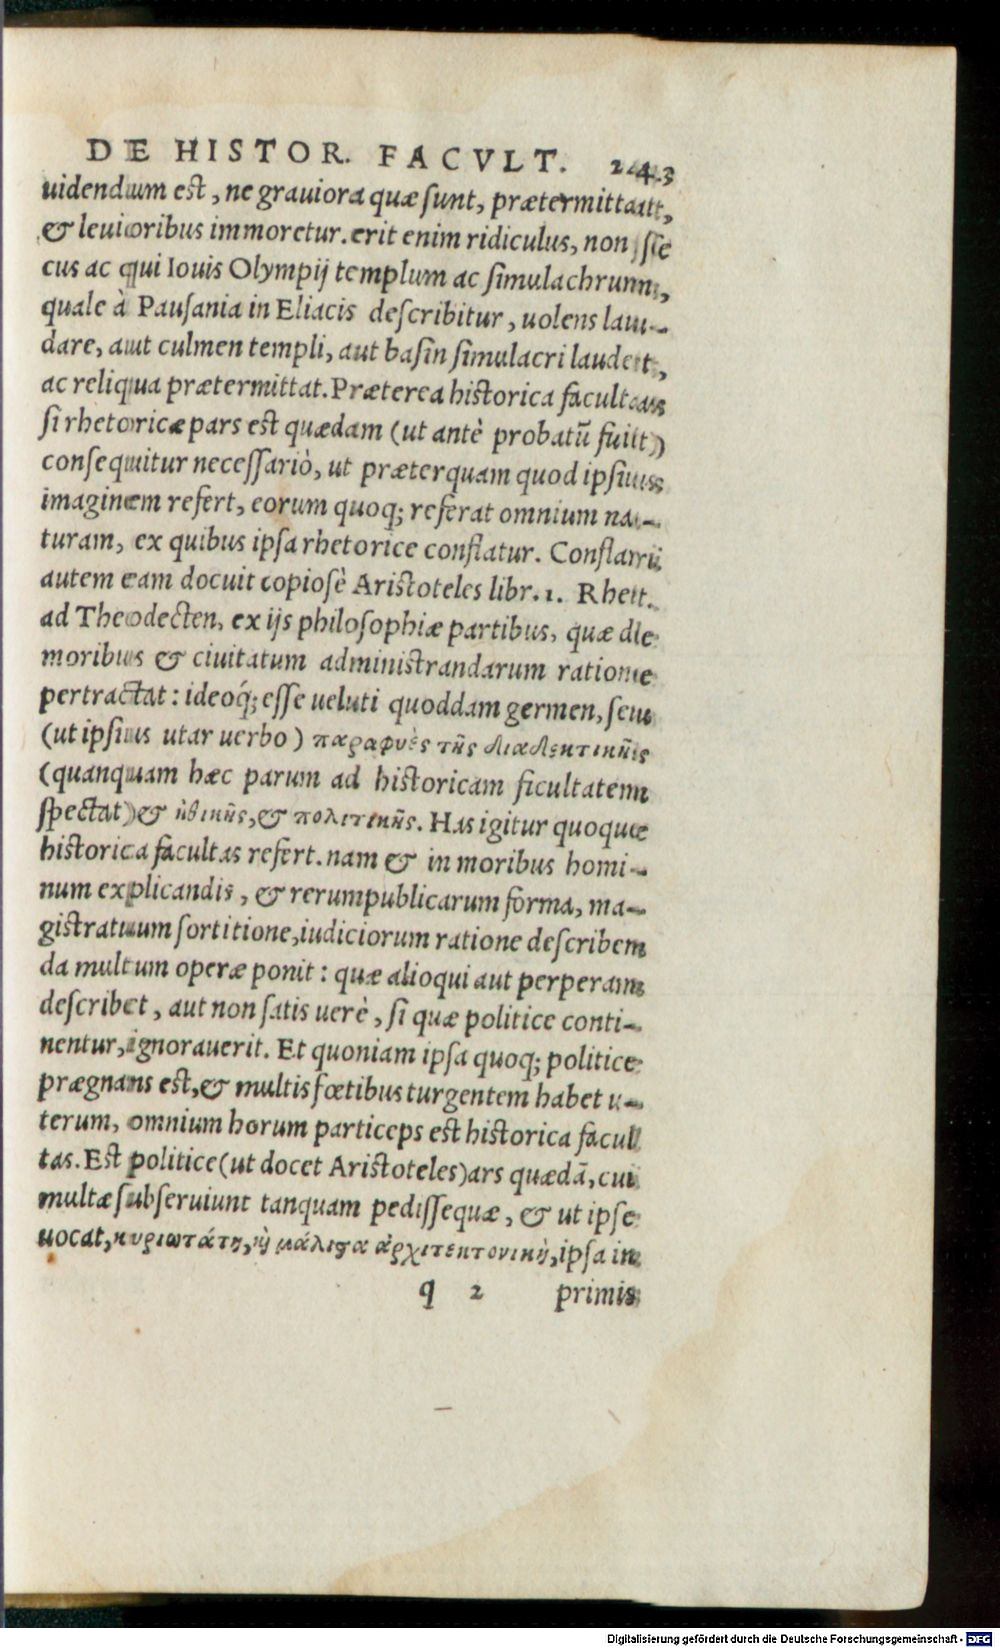 DE HISTOR. FACVLT. 243
uidendum est, ne grauiora quæ sunt, prætermittat,
& leuioribus immoretur. erit enim ridiculus, non se
cus ac qui Iouis Olympij templum ac simulachrum,
quale à Pausania in Eliacis describitur, uolens lau-
dare, aut culmen templi, aut basin simulacri laudet,
ac reliqua prætermittat. Præterea historica facultas
si rhetoricæ pars est quædam (ut antè probatũ fuit)
consequitur necessariò, ut præterquam quod ipsius
imaginem refert, eorum quoq; referat omnium na-
turam, ex quibus ipsa rhetorice conflatur. Conflari
autem eam docuit copiosè Aristoteles libr. 1. Rhet.
ad Theodecten, ex ijs philosophiæ partibus, quæ de
moribus & ciuitatum administrandarum ratione
pertractat: ideoq́; esse ueluti quoddam germen, seu
(ut ipsius utar uerbo) παραφυὲς τῆς διαλεκτικῆς
(quanquam hæc parum ad historicam ficultatem
spectat) & ἠθικῆς, & πολιτικῆς. Has igitur quoque
historica facultas refert. nam & in moribus homi-
num explicandis, & rerumpublicarum forma, ma-
gistratuum sortitione, iudiciorum ratione describen
da multum operæ ponit: quæ alioqui aut perperam
describet, aut non satis uerè, si quæ politice conti-
nentur, ignorauerit. Et quoniam ipsa quoq; politice
prægnans est, & multis fœtibus turgentem habet u-
terum, omnium horum particeps est historica facul
tas. Est politice (ut docet Aristoteles) ars quædã, cui
multæ subseruiunt tanquam pedissequæ, & ut ipse
uocat, κυριωτάτη, ἢ μάλιϛα ἀρχιτεκτονικὴ, ipsa in
q 2 primis
Digitalisierung gefördert durch die Deutsche Forschungsgemeinschaft - DFG